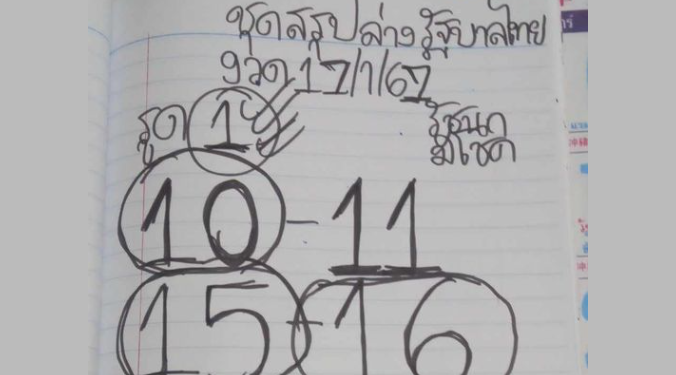 ชุดสรุปล่างรัฐบาลไทย
งวด 17/1/67
รูด 1
มีโชค
10 - 11
15 - 16